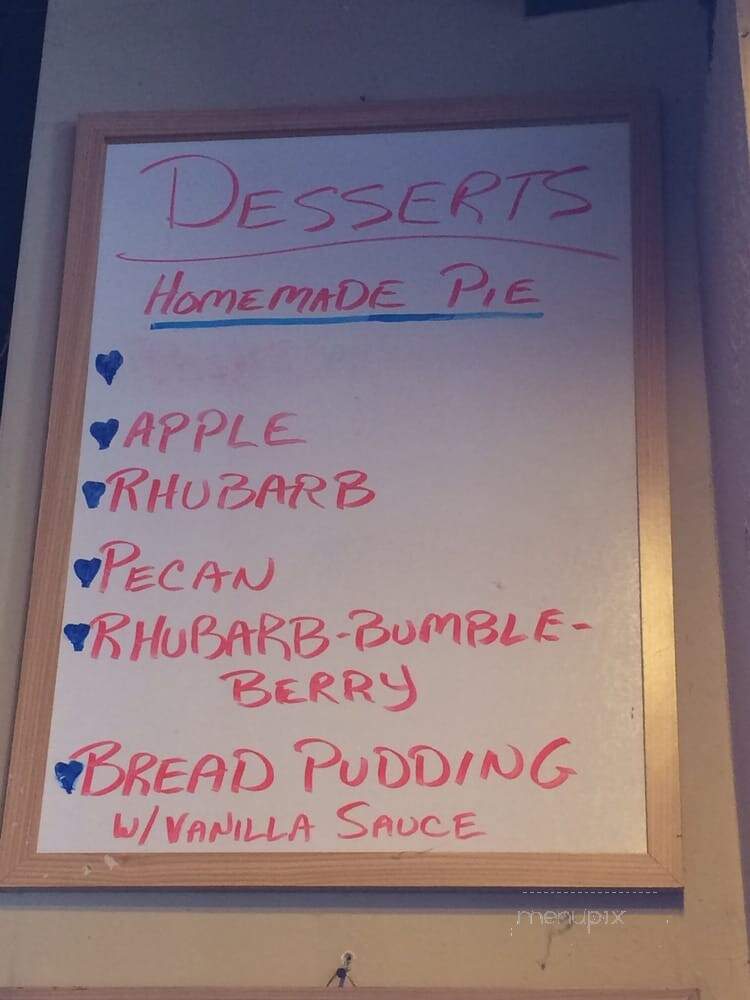 DESSERTS
HOMEMADE PIE
APPLE
RHUBARB
PECAN
RHUBARB-BUMBLE-
BERRY
BREAD PUDDING
W/ VANILLA SAUCE
menupix